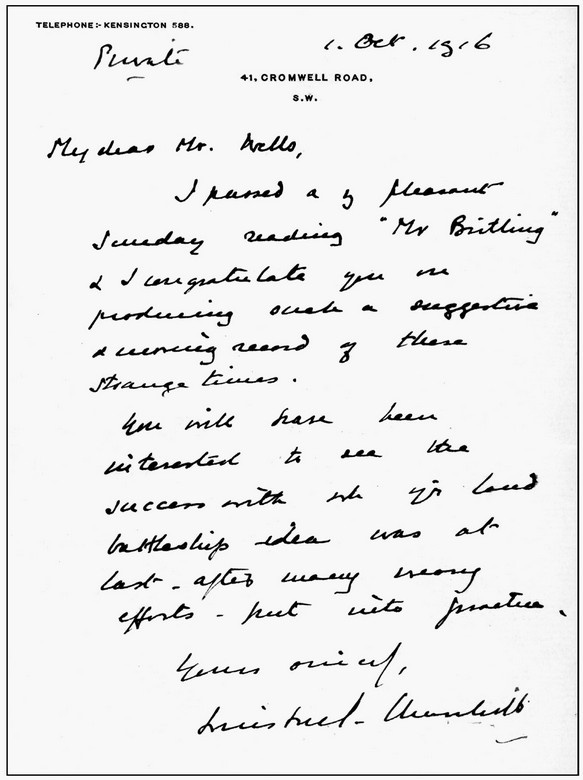 TELEPHONE:- KENSINGTON 588.
1. Oct. 1916
Private
41, CROMWELL ROAD,
S.W.
My dear Mr. Wells,
I passed a y pleasant
Sunday reading "Mr Britling"
& I congratulate you on
producing such a suggestive
& moving record of these
strange times.
You will have been
interested to see the
success with wh yr land
battleship idea was at
last - after many weary
efforts - put into practice.
Yours sincly,
Winston S. Churchill